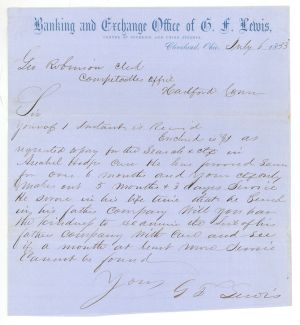 Banking and Exchange Office of G. F. Lewis,
CORNER OF SUPERIOR AND UNION STREETS.
Cleveland, Ohio, July 6 1853
Geo Robinson Clerk
Comptrollers Office
Hartford Conn
Sir
Yours of 1 Instant is Recvd
Enclosed is $1 as
requested to pay for the Search & c
in
Case he have proved Sam
for over 6 months and your
makes out 5 months & 3 days Service
He swore in his life time that he Served
in his father Company Will you have
the kindness to examine the
father Company With Care and see
if a month at least more Service
cannot be found
Yours
G F Lewis